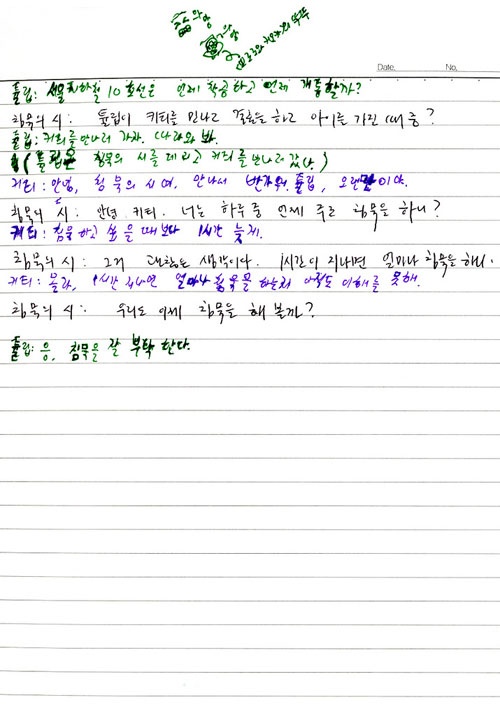 Date. No.
튤립: 서울지하철 10호선은 언제 착공하고 언제 개통할까?
침묵의 시: 튤립이 키티를 만나고 결혼을 하고 아이를 가진 때 즘?
튤립: 키티를 만나러 가자. 따라와 봐.
(튤립은 침묵의 시를 데리고 키티를 만나러 갔다.)
키티: 안녕, 침묵의 시여, 만나서 반가워. 튤립, 오랜만이야.
침묵의 시: 안녕 키티. 너는 하루 중 언제 주로 침묵을 하니?
키티: 침묵하고 싶을 때보다 1시간 늦게.
침묵의 시: 그거 대단한 생각이다. 1시간이 지나면 얼마나 침묵을 하니.
키티: 몰라, 1시간 지나면 얼마나 침묵을 하는지 아직도 이해를 못해.
침묵의 시: 우리도 이제 침묵을 해 볼까?
튤립: 응, 침묵을 잘 부탁 한다.